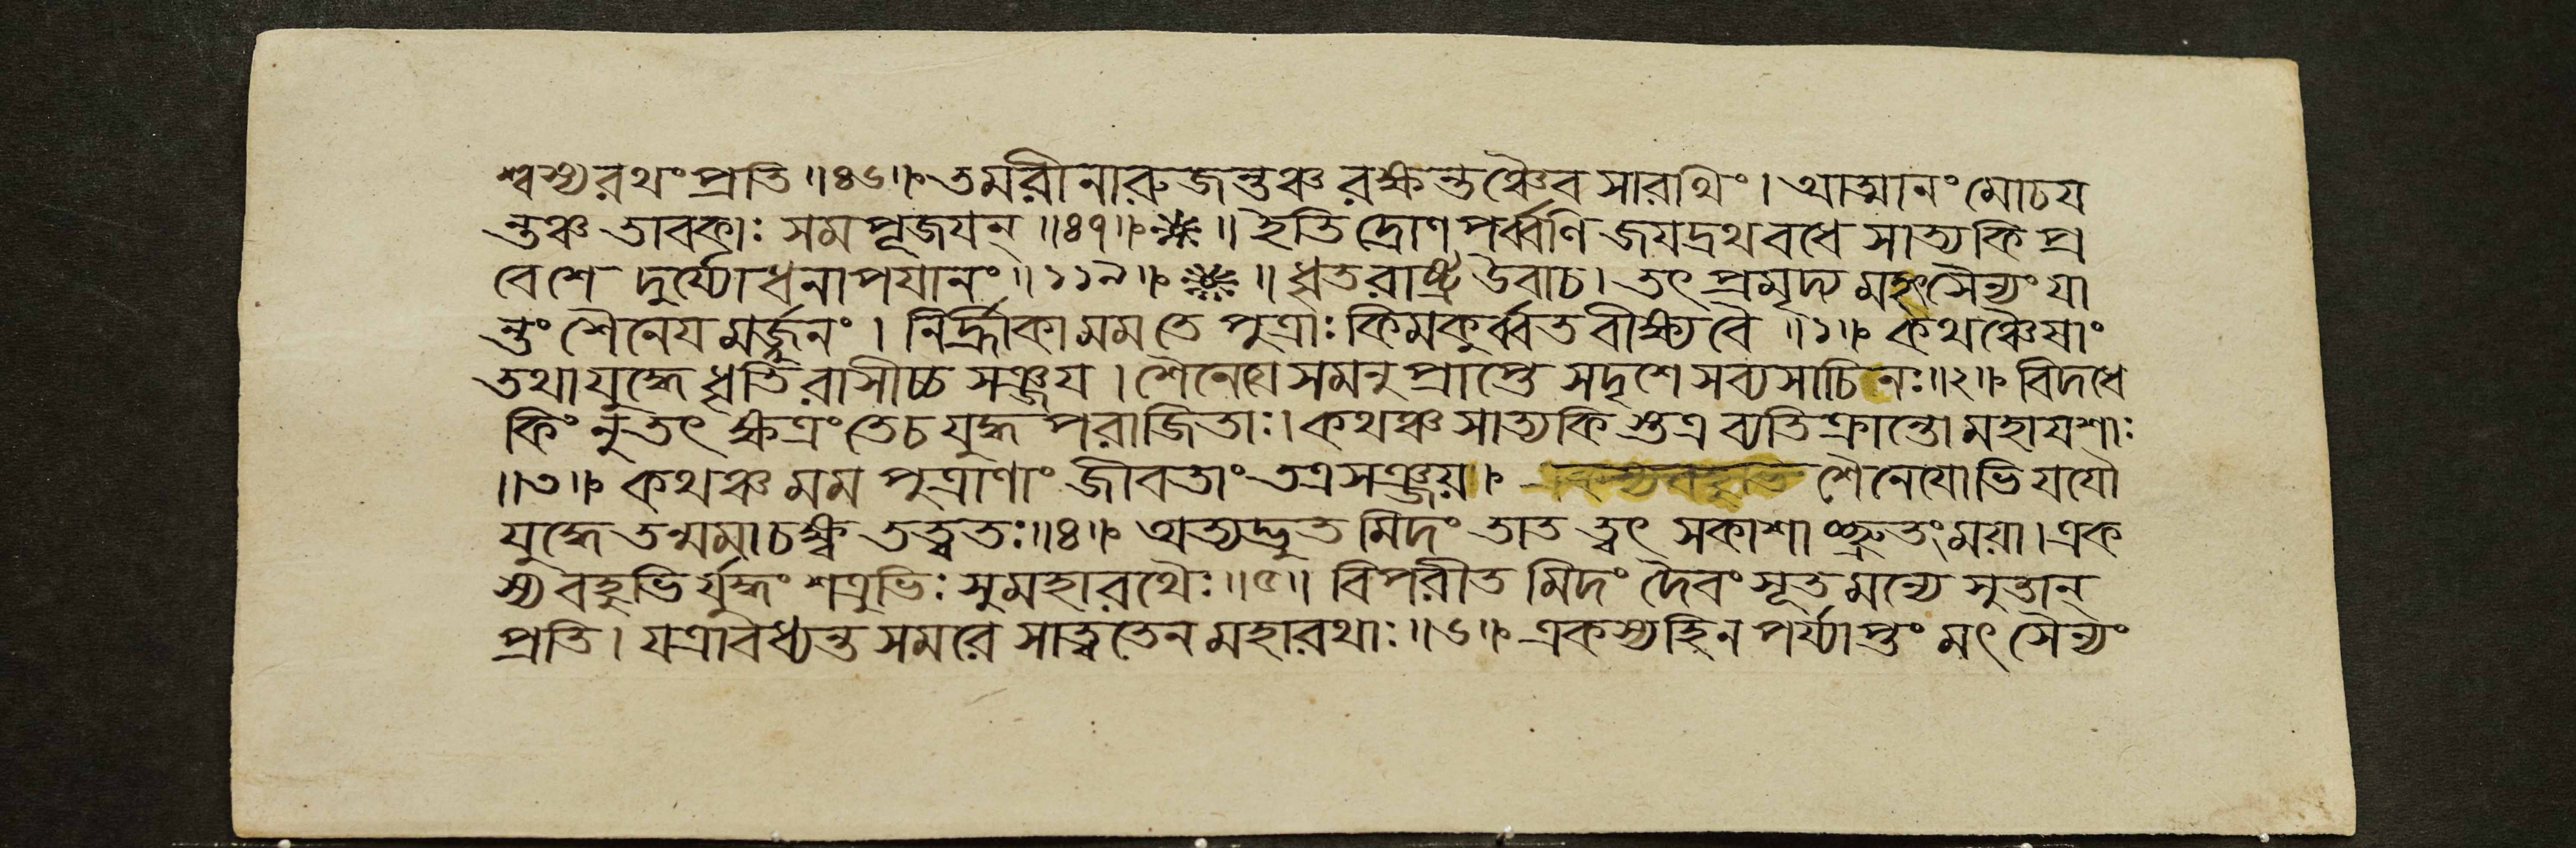 শ্বস্থ্যরথংপ্রতি॥৪৬॥তমরীনারুজন্তঞ্চরক্ষন্তঞ্চৈবসারথিং।আত্মানংমোচয
ন্তঞ্চতাবকাঃসমপূজযন্॥৪৭॥❋॥ইতিদ্রোণপর্ব্বণিজযদ্রথবধেসাত্যকিপ্র
বেশেদুর্য্যোধনাপযানং॥১১৯॥❋॥ধৃতরাষ্ট্রউবাচ।তৎপ্রমৃদ্যমহৎসৈন্যংযা
ন্তংশৈনেযমর্জ্জুনং।নির্হ্রীকামমতেপুত্রাঃকিমকুর্ব্বতবীক্ষ্যবৈ॥১॥কথঞ্চৈষাং
তথাযুদ্ধেধৃতিরাসীচ্চসঞ্জয।শৈনেযেসমনুপ্রাপ্তেসদৃশেসব্যসাচিনঃ॥২॥বিদধে
কিংনুতৎক্ষত্রংতেচযুদ্ধপরাজিতাঃ।কথঞ্চসাত্যকিস্তত্রব্যতিক্রান্তোমহাযশাঃ
॥৩॥কথঞ্চমমপুত্রাণাংজীবতাংতত্রসঞ্জয়।শৈনেযোভিযযৌ
যুদ্ধেতন্মমাচক্ষ্বতত্ত্বতঃ॥৪॥অত্যদ্ভুতমিদংতাতত্বৎসকাশাচ্ছ্রুতংময়া।এক
স্যবহুভির্যুদ্ধংশত্রুভিঃসুমহারথৈঃ॥৫॥বিপরীতমিদংদৈবংসূতমন্যেসুতান্
প্রতি।যত্রাবধ্যন্তসমরেসাত্ত্বতেনমহারথাঃ॥৬॥একস্যহিনপর্য্যাপ্তংমৎসৈন্যং